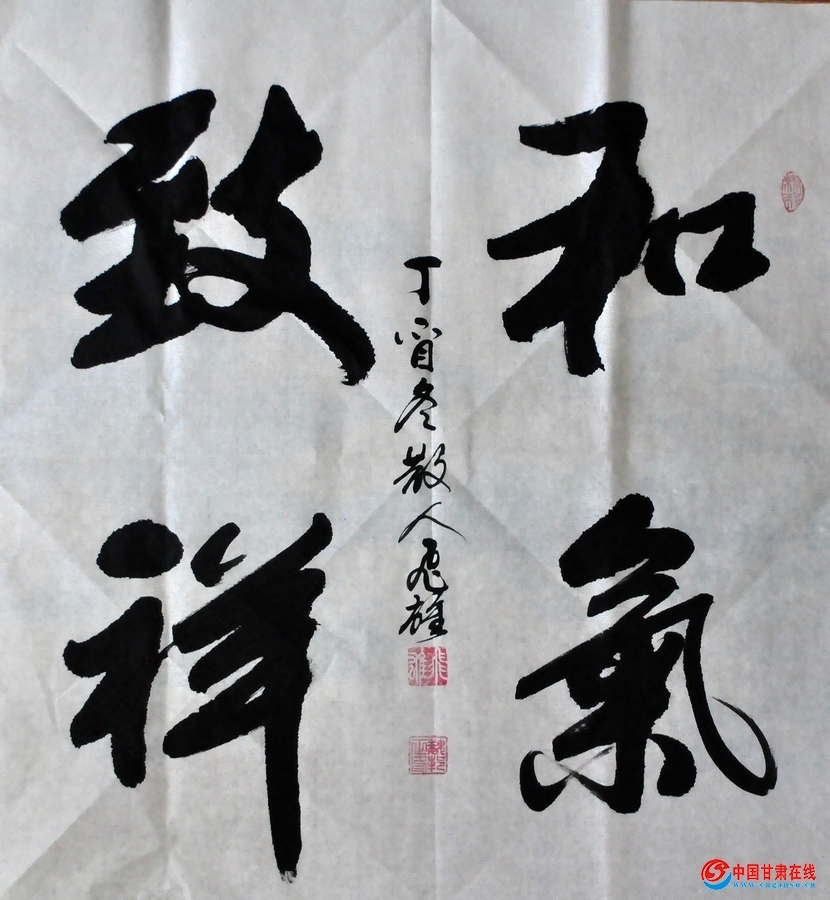 和氣
致祥
丁酉冬散人飛雄
飛雄
中国甘肃在线
www.cngansu.cn